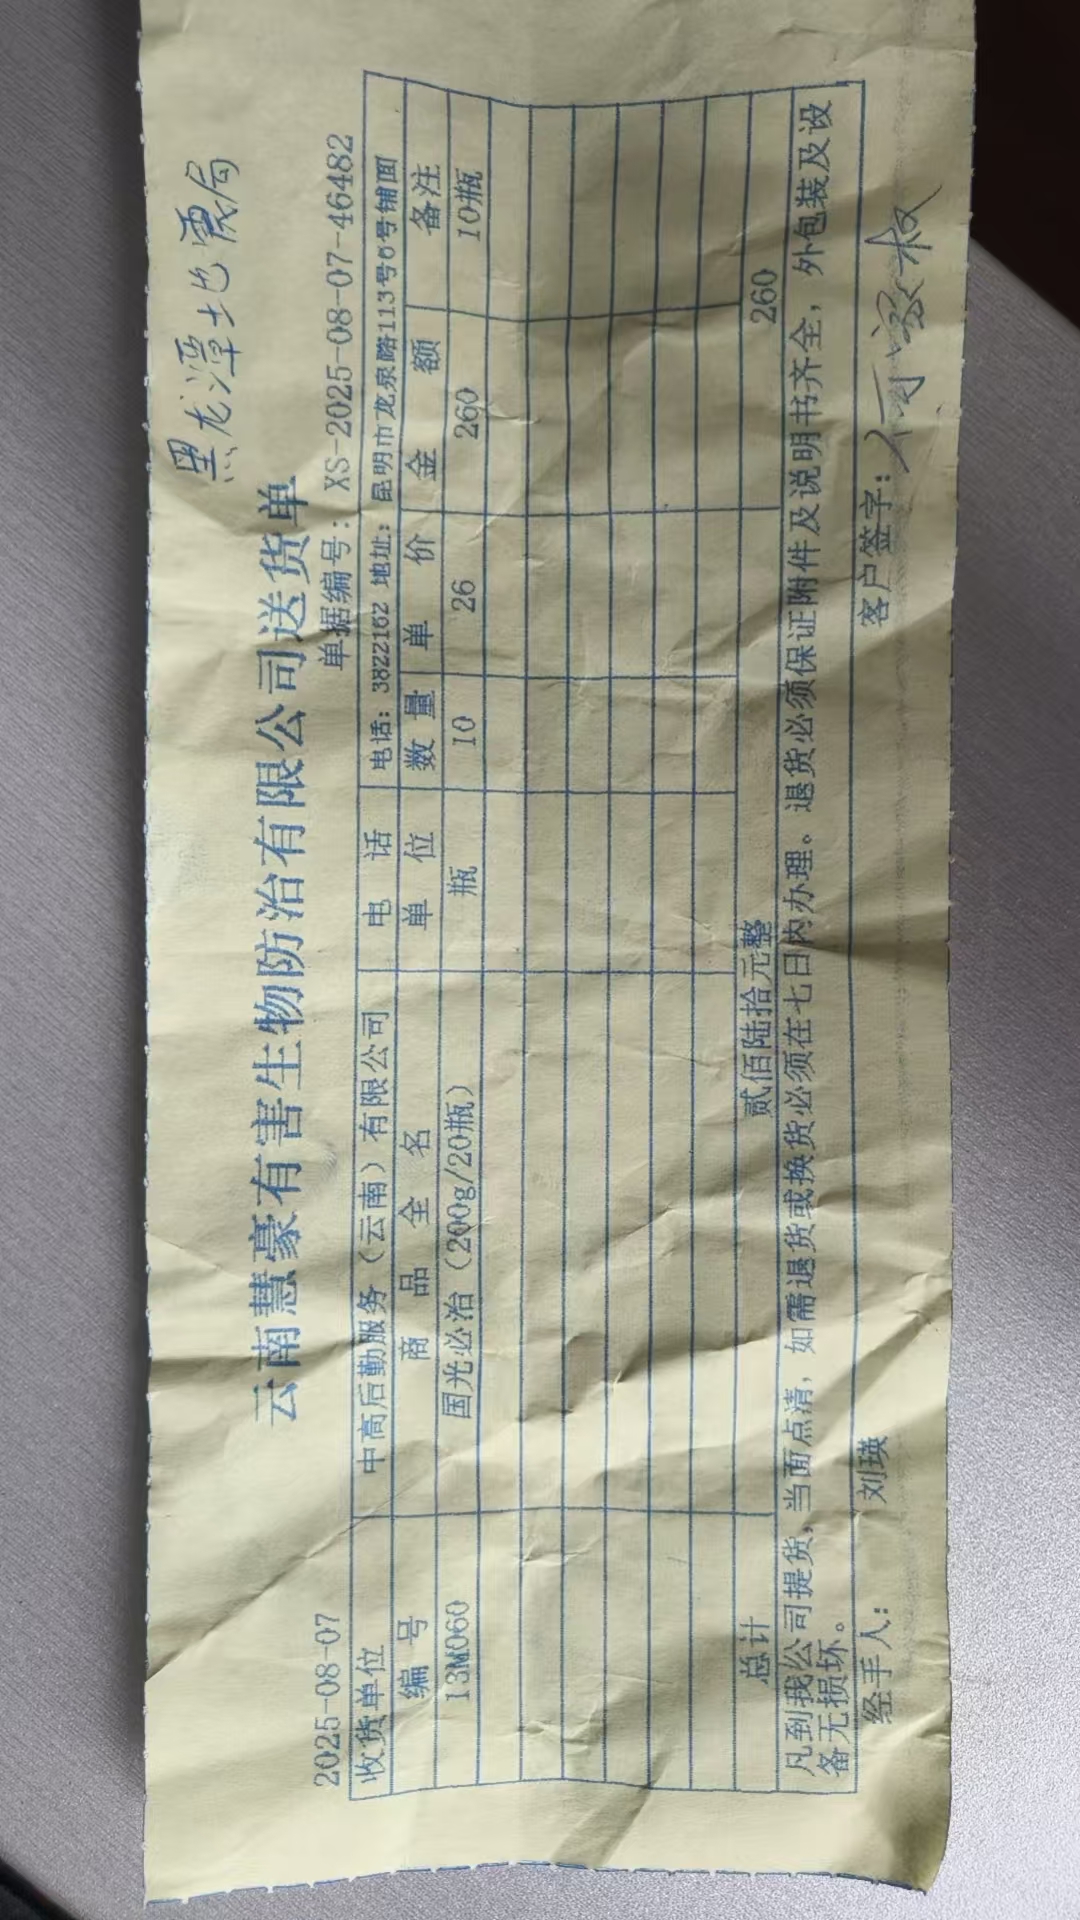 黑龙潭地震局
云南慧豪有害生物防治有限公司送货单
2025-08-07 单据编号：XS-2025-08-07-46482
收货单位 中高后勤服务（云南）有限公司 电 话 电话：3822162 地址：昆明市龙泉路113号6号铺面
编 号 商 品 全 名 单 位 数 量 单 价 金 额 备注
13M060 国光必治（200g/20瓶） 瓶 10 26 260 10瓶
总计 贰佰陆拾元整 260
凡到我公司提货，当面点清，如需退货或换货必须在七日内办理。退货必须保证附件及说明书齐全，外包装及设
备无损坏。
经手人： 刘瑛 客户签字：